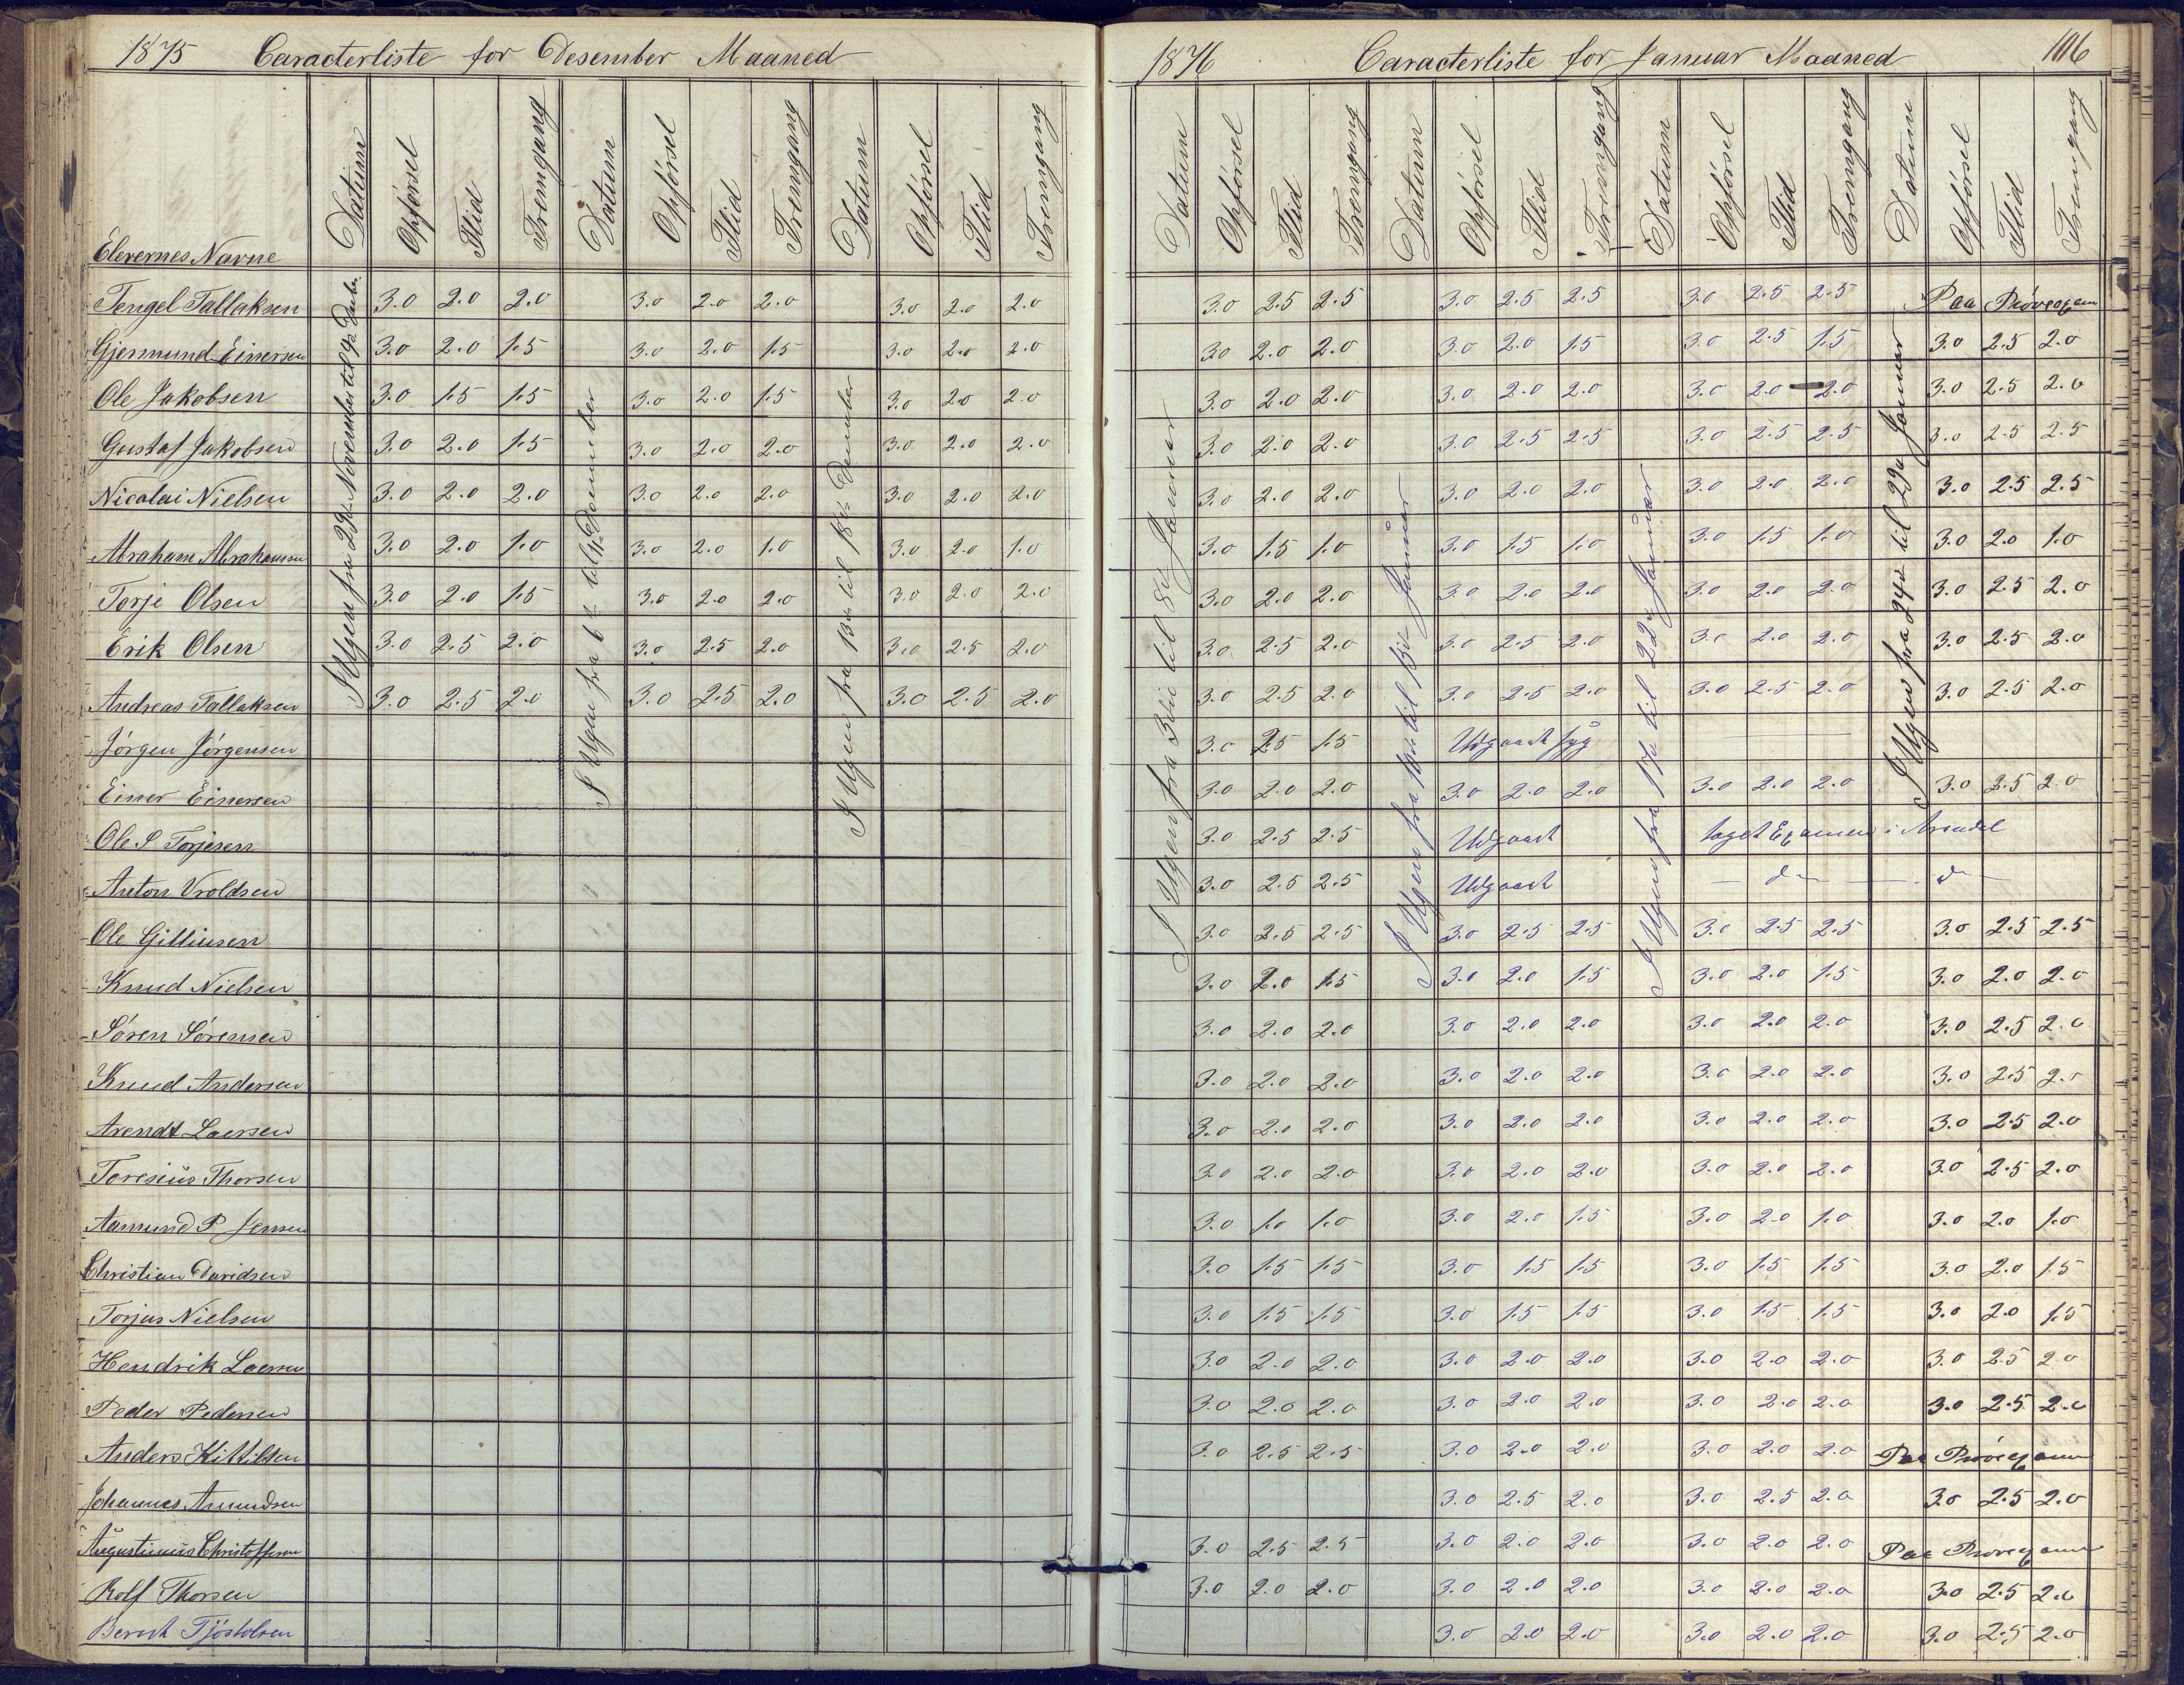 1875 Caracterliste for Desember Maaned
1876 Caracterliste for Januar Maaned 106
Elevernes Navne Datum Opførsel Flid Fremgang Datum Opførsel Flid Fremgang Datum Opførsel Flid Fremgang
Datum Opførsel Flid Fremgang Datum Opførsel Flid Fremgang Datum Opførsel Flid Fremgang Datum Opførsel Flid Fremgang
I Ugen fra 29de November til 4de Debr.
I Ugen fra 6te til 11te Desember
I Ugen fra 13de til 18de Desember
I Ugen fra 3die til 8de Januar
I Ugen fra 10de til 15de Januar
I Ugen fra 17de til 22de Januar
I Ugen fra 24de til 29de Januar
Tengel Tallaksen 3.0 2.0 2.0 3.0 2.0 2.0 3.0 2.0 2.0 3.0 2.5 2.5 3.0 2.5 2.5 3.0 2.5 2.5 Paa Prøvexamen
Gjermund Einersen 3.0 2.0 1.5 3.0 2.0 1.5 3.0 2.0 2.0 3.0 2.0 2.0 3.0 2.0 1.5 3.0 2.5 1.5 3.0 2.5 2.0
Ole Jakobsen 3.0 1.5 1.5 3.0 2.0 1.5 3.0 2.0 2.0 3.0 2.0 2.0 3.0 2.0 2.0 3.0 2.0 2.0 3.0 2.5 2.0
Gustaf Jakobsen 3.0 2.0 1.5 3.0 2.0 2.0 3.0 2.0 2.0 3.0 2.0 2.0 3.0 2.5 2.5 3.0 2.5 2.5 3.0 2.5 2.5
Nicolai Nielsen 3.0 2.0 2.0 3.0 2.0 2.0 3.0 2.0 2.0 3.0 2.0 2.0 3.0 2.0 2.0 3.0 2.0 2.0 3.0 2.5 2.5
Abraham Abrahamsen 3.0 2.0 1.0 3.0 2.0 1.0 3.0 2.0 1.0 3.0 1.5 1.0 3.0 1.5 1.0 3.0 1.5 1.0 3.0 2.0 1.0
Torje Olsen 3.0 2.0 1.5 3.0 2.0 2.0 3.0 2.0 2.0 3.0 2.0 2.0 3.0 2.0 2.0 3.0 2.0 2.0 3.0 2.5 2.0
Erik Olsen 3.0 2.5 2.0 3.0 2.5 2.0 3.0 2.5 2.0 3.0 2.5 2.0 3.0 2.5 2.0 3.0 2.0 2.0 3.0 2.5 2.0
Andreas Tallaksen 3.0 2.5 2.0 3.0 2.5 2.0 3.0 2.5 2.0 3.0 2.5 2.0 3.0 2.5 2.0 3.0 2.5 2.0 3.0 2.5 2.0
Jørgen Jørgensen 3.0 2.5 1.5 Udgaaet syg
Einer Einersen 3.0 2.0 2.0 3.0 2.0 2.0 3.0 2.0 2.0 3.0 2.5 2.0
Ole S Torjesen 3.0 2.5 2.5 Udgaaet taget Examen i Arendal
Anton Vroldsen 3.0 2.5 2.5 Udgaaet — do — — do —
Ole Gilliusen 3.0 2.5 2.5 3.0 2.5 2.5 3.0 2.5 2.5 3.0 2.5 2.5
Knud Nielsen 3.0 2.0 1.5 3.0 2.0 1.5 3.0 2.0 1.5 3.0 2.0 2.0
Søren Sørensen 3.0 2.0 2.0 3.0 2.0 2.0 3.0 2.0 2.0 3.0 2.5 2.0
Knud Andersen 3.0 2.0 2.0 3.0 2.0 2.0 3.0 2.0 2.0 3.0 2.5 2.0
Arendt Laersen 3.0 2.0 2.0 3.0 2.0 2.0 3.0 2.0 2.0 3.0 2.5 2.0
Toresius Thorsen 3.0 2.0 2.0 3.0 2.0 2.0 3.0 2.0 2.0 3.0 2.5 2.0
Aamund P Jensen 3.0 1.0 1.0 3.0 2.0 1.5 3.0 2.0 1.0 3.0 2.0 1.0
Christian Davidsen 3.0 1.5 1.5 3.0 1.5 1.5 3.0 1.5 1.5 3.0 2.0 1.5
Torjus Nielsen 3.0 1.5 1.5 3.0 1.5 1.5 3.0 1.5 1.5 3.0 2.0 1.5
Hendrik Laersen 3.0 2.0 2.0 3.0 2.0 2.0 3.0 2.0 2.0 3.0 2.5 2.0
Peder Pedersen 3.0 2.0 2.0 3.0 2.0 2.0 3.0 2.0 2.0 3.0 2.5 2.0
Anders Kittilsen 3.0 2.5 2.5 3.0 2.0 2.0 3.0 2.0 2.0 Paa Prøvexamen
Johannes Amundsen 3.0 2.5 2.0 3.0 2.5 2.0 3.0 2.5 2.0
Augustinius Christoffersen 3.0 2.5 2.5 3.0 2.0 2.0 3.0 2.0 2.0 Paa Prøvexamen
Rolf Thorsen 3.0 2.0 2.0 3.0 2.0 2.0 3.0 2.0 2.0 3.0 2.5 2.0
Berent Tjøstolsen 3.0 2.0 2.0 3.0 2.0 2.0 3.0 2.5 2.0